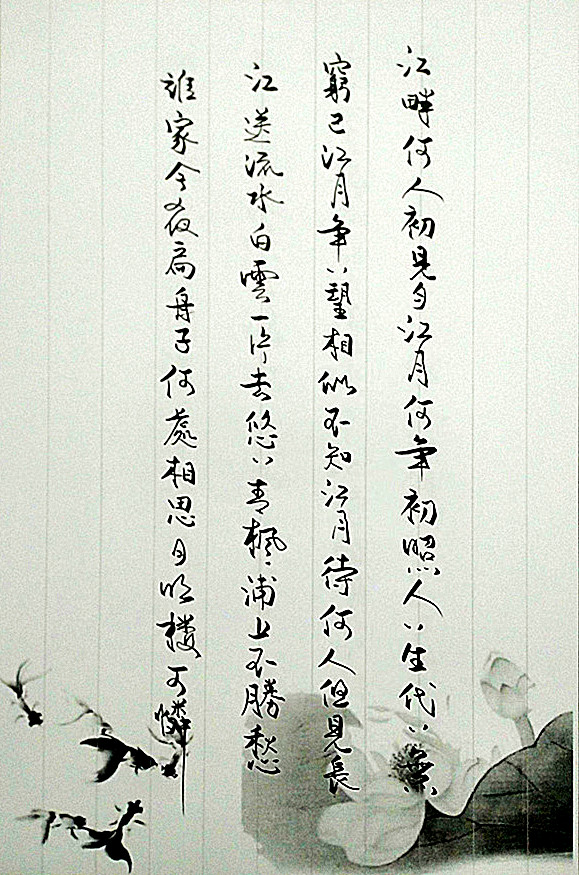 江畔何人初見月江月何年初照人〻生代〻無
窮已江月年〻望相似不知江月待何人但見長
江送流水白雲一片去悠〻青楓浦上不勝愁
誰家今夜扁舟子何處相思月明樓可憐